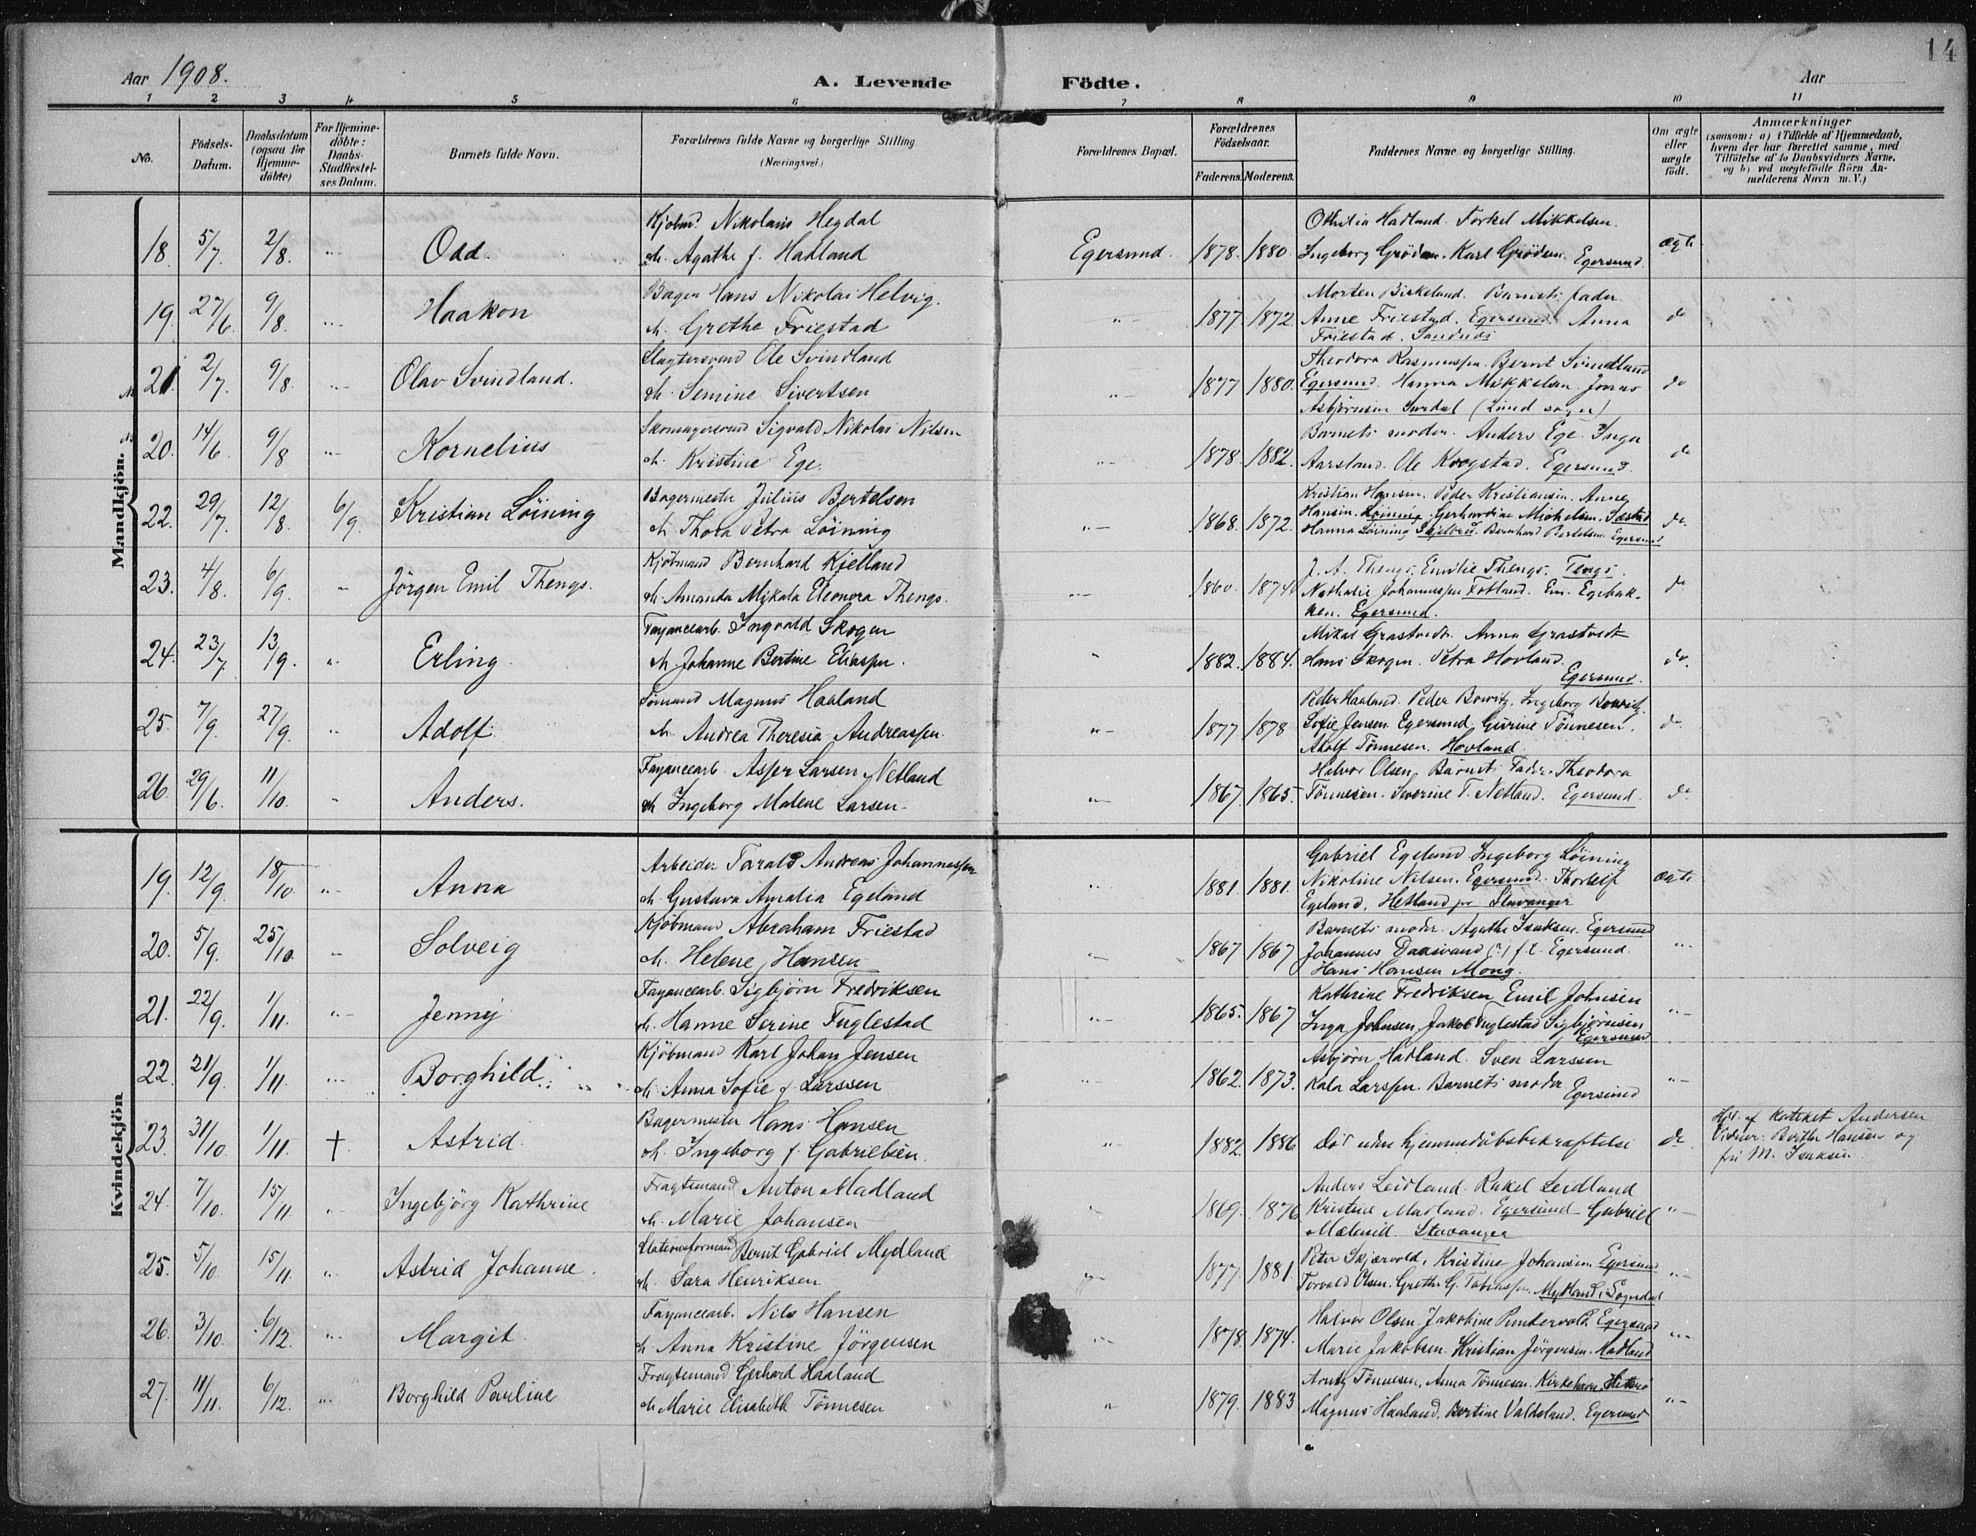 14
Aar 1908. A. Levende Födte. Aar
1 2 3 4 5 6 7 8 9 10 11
No. Födsels-Datum. Daabsdatum (ogsaa for Hjemme-döbte) For Hjemme-döbte: Daabs-Stadfæstel-ses Datum. Barnets fulde Navn. Forældrenes fulde Navne og borgerlige Stilling (Næringsvei) Forældrenes Bopæl. Forældrenes Födselsaar. Faderens. Moderens. Faddernes Navne og borgerlige Stilling. Om ægte eller uægte födt. Anmærkninger (saasom: a) i Tilfælde af Hjemmedaab, hvem der har forrettet samme, med Tilföielse af to Daabsvidners Navne, og b) ved uægtefödte Börn An-melderens Navn m. V.)
Mandkjön.
18. 5/7 2/8 Odd. Kjöbmd. Nikolais Hegdal
m. Agathe f. Hadland Egersund. 1878. 1880.
Othilia Hadland. Torkel Mikkelsen.
Ingeborg Grödem. Karl Grödem. Egersund. ægte
19. 27/6 9/8 Haakon Bager Hans Nikolai Helvig.
m. Grethe Friestad 1877. 1872.
Morten Birkeland. Barnets fader.
Anne Friestad. Egersund. Anna
Friestad. do
21. 2/7 9/8 Olav Svindland. Slagtersvend Ole Svindland
m. Semine Sivertsen 1877 1880.
Theodora Rasmussen. Bernt Svindland
Egersund. Hanna Mikkelsen. Jonas
Asbjörnsen (Lund sogn) do
20. 14/6 9/8 Kornelius Skomagersvend Sigvald Nikolai Nilsen
m. Kristine Ege. 1878. 1882.
Barnets moder. Anders Ege. Inga
Aarstad. Ole Krogstad. Egersund. do
22. 29/7 12/8 6/9 Kristian Löining Bagermester Julius Bertelsen
m. Thora Petra Löining 1868. 1872.
Kristian Hansen. Peder Kristiansen. Anne
Hansen. Löining. Gerhardine Mickelsen.
Hanna Löining. Bernhard Bertelsen. Egersund do.
23. 4/8. 6/9. Jörgen Emil Thengs. Kjöbmand Bernhard Kjelland
m. Amanda Mikala Eleonora Thengs. 1860. 1874
J. A. Thengs. Emilie Thengs. Tengs.
Nathalie Johannessen Fotland. Em. Egebak-
ken. Egersund. do
24. 23/7 13/9. Erling. Fayancearb. Ingvald Skogen
m. Johanne Bertine Eliassen. 1882. 1884.
Mikal Grastvedt. Anna Grastvedt
Hans Skogen. Petra Hovland.
Egersund. do.
25. 7/9. 27/9. Adolf. Sömand Magnus Haaland
m. Andrea Theresia Andreassen. 1877. 1878
Peder Haaland. Peder Bowitz. Ingeborg Bowitz.
Sofie Jensen Egersund. Gurine Tönnesen.
Adolf Tönnesen. Hovland. do
26. 29/6. 11/10. Anders. Fayancearb. Asser Larsen Netland
m. Ingeborg Malene Larsen. 1867. 1865.
Halvor Olsen. Barnets Fader. Theodora
Tönnesen. Severine T. Netland. Egersund. do
Kvindekjön
19. 12/9 18/10 Anna Arbeider Tarald Andreas Johannessen
m. Gustava Amalia Egeland 1881. 1881.
Gabriel Egeland Ingeborg Löining
Nikoline Nilsen, Egersund. Thorleif
Egeland. Hetland pr Stavanger ægte
20. 5/9. 25/10. Solveig Kjöbmand Abraham Friestad
m. Helene Hansen 1867 1867
Barnets moder. Agathe Isaksen. Egersund
Johannes Daasvand (?) f.t. Egersund.
Hans Hansen Mong.
21. 22/9 1/11. Jenny Fayancearb. Sigbjörn Fredriksen
m. Hanne Serine Fuglestad 1865. 1867
Kathrine Fredriksen Emil Johnsen
Inga Johnsen. Jakob Fuglestad Sigbjörnsen
Egersund
22. 21/9 1/11. Borghild Kjöbmand Karl Johan Jensen
m. Anna Sofie f. Larssen 1862. 1873.
Asbjörn Hadland. Sven Larssen
Kala Larssen. Barnets moder Egersund
23. 31/10. 1/11. † Astrid. Bagermester Hans Hansen
m. Ingeborg f. Gabrielsen. 1882. 1886.
Död uden hjemmedaabsbekræftelse do
Hjd. af kateket Andersen
Vidner: Berthe Hansen og
M. Isaksen.
24. 7/10. 15/11. Ingebjörg Kathrine Fragtemand Anton Madland
m. Marie Johansen 1869. 1876
Anders Leidland. Rakel Leidland
Kristine Madland. Egersund Gabriel
Mælund. Stavanger
25. 5/10. 15/11. Astrid Johanne. Stationsformand Bernt Gabriel Mydland
m. Sara Henriksen 1877. 1881
Peter Skjærvold, Kristine Johansen. Egersund
Torvald Olsen. Grethe G. Tobiassen. Mydland, Sogndal
26. 3/10. 6/12. Margit. Fayancearb. Nils Hansen
m. Anna Kristine Jörgensen 1878. 1874.
Halvor Olsen. Jakobine Puntervold. Egersund
Marie Jakobsen Kristian Jörgensen. Madland
27. 11/11. 6/12. Borghild Pauline Fragtemand Gerhard Haaland
m. Marie Elisabeth Tönnesen 1879. 1883
Tönnesen, Anna Tönnesen. Kirkehavn, Hiterö
Magnus Haaland. Bertine Valdeland. Egersund